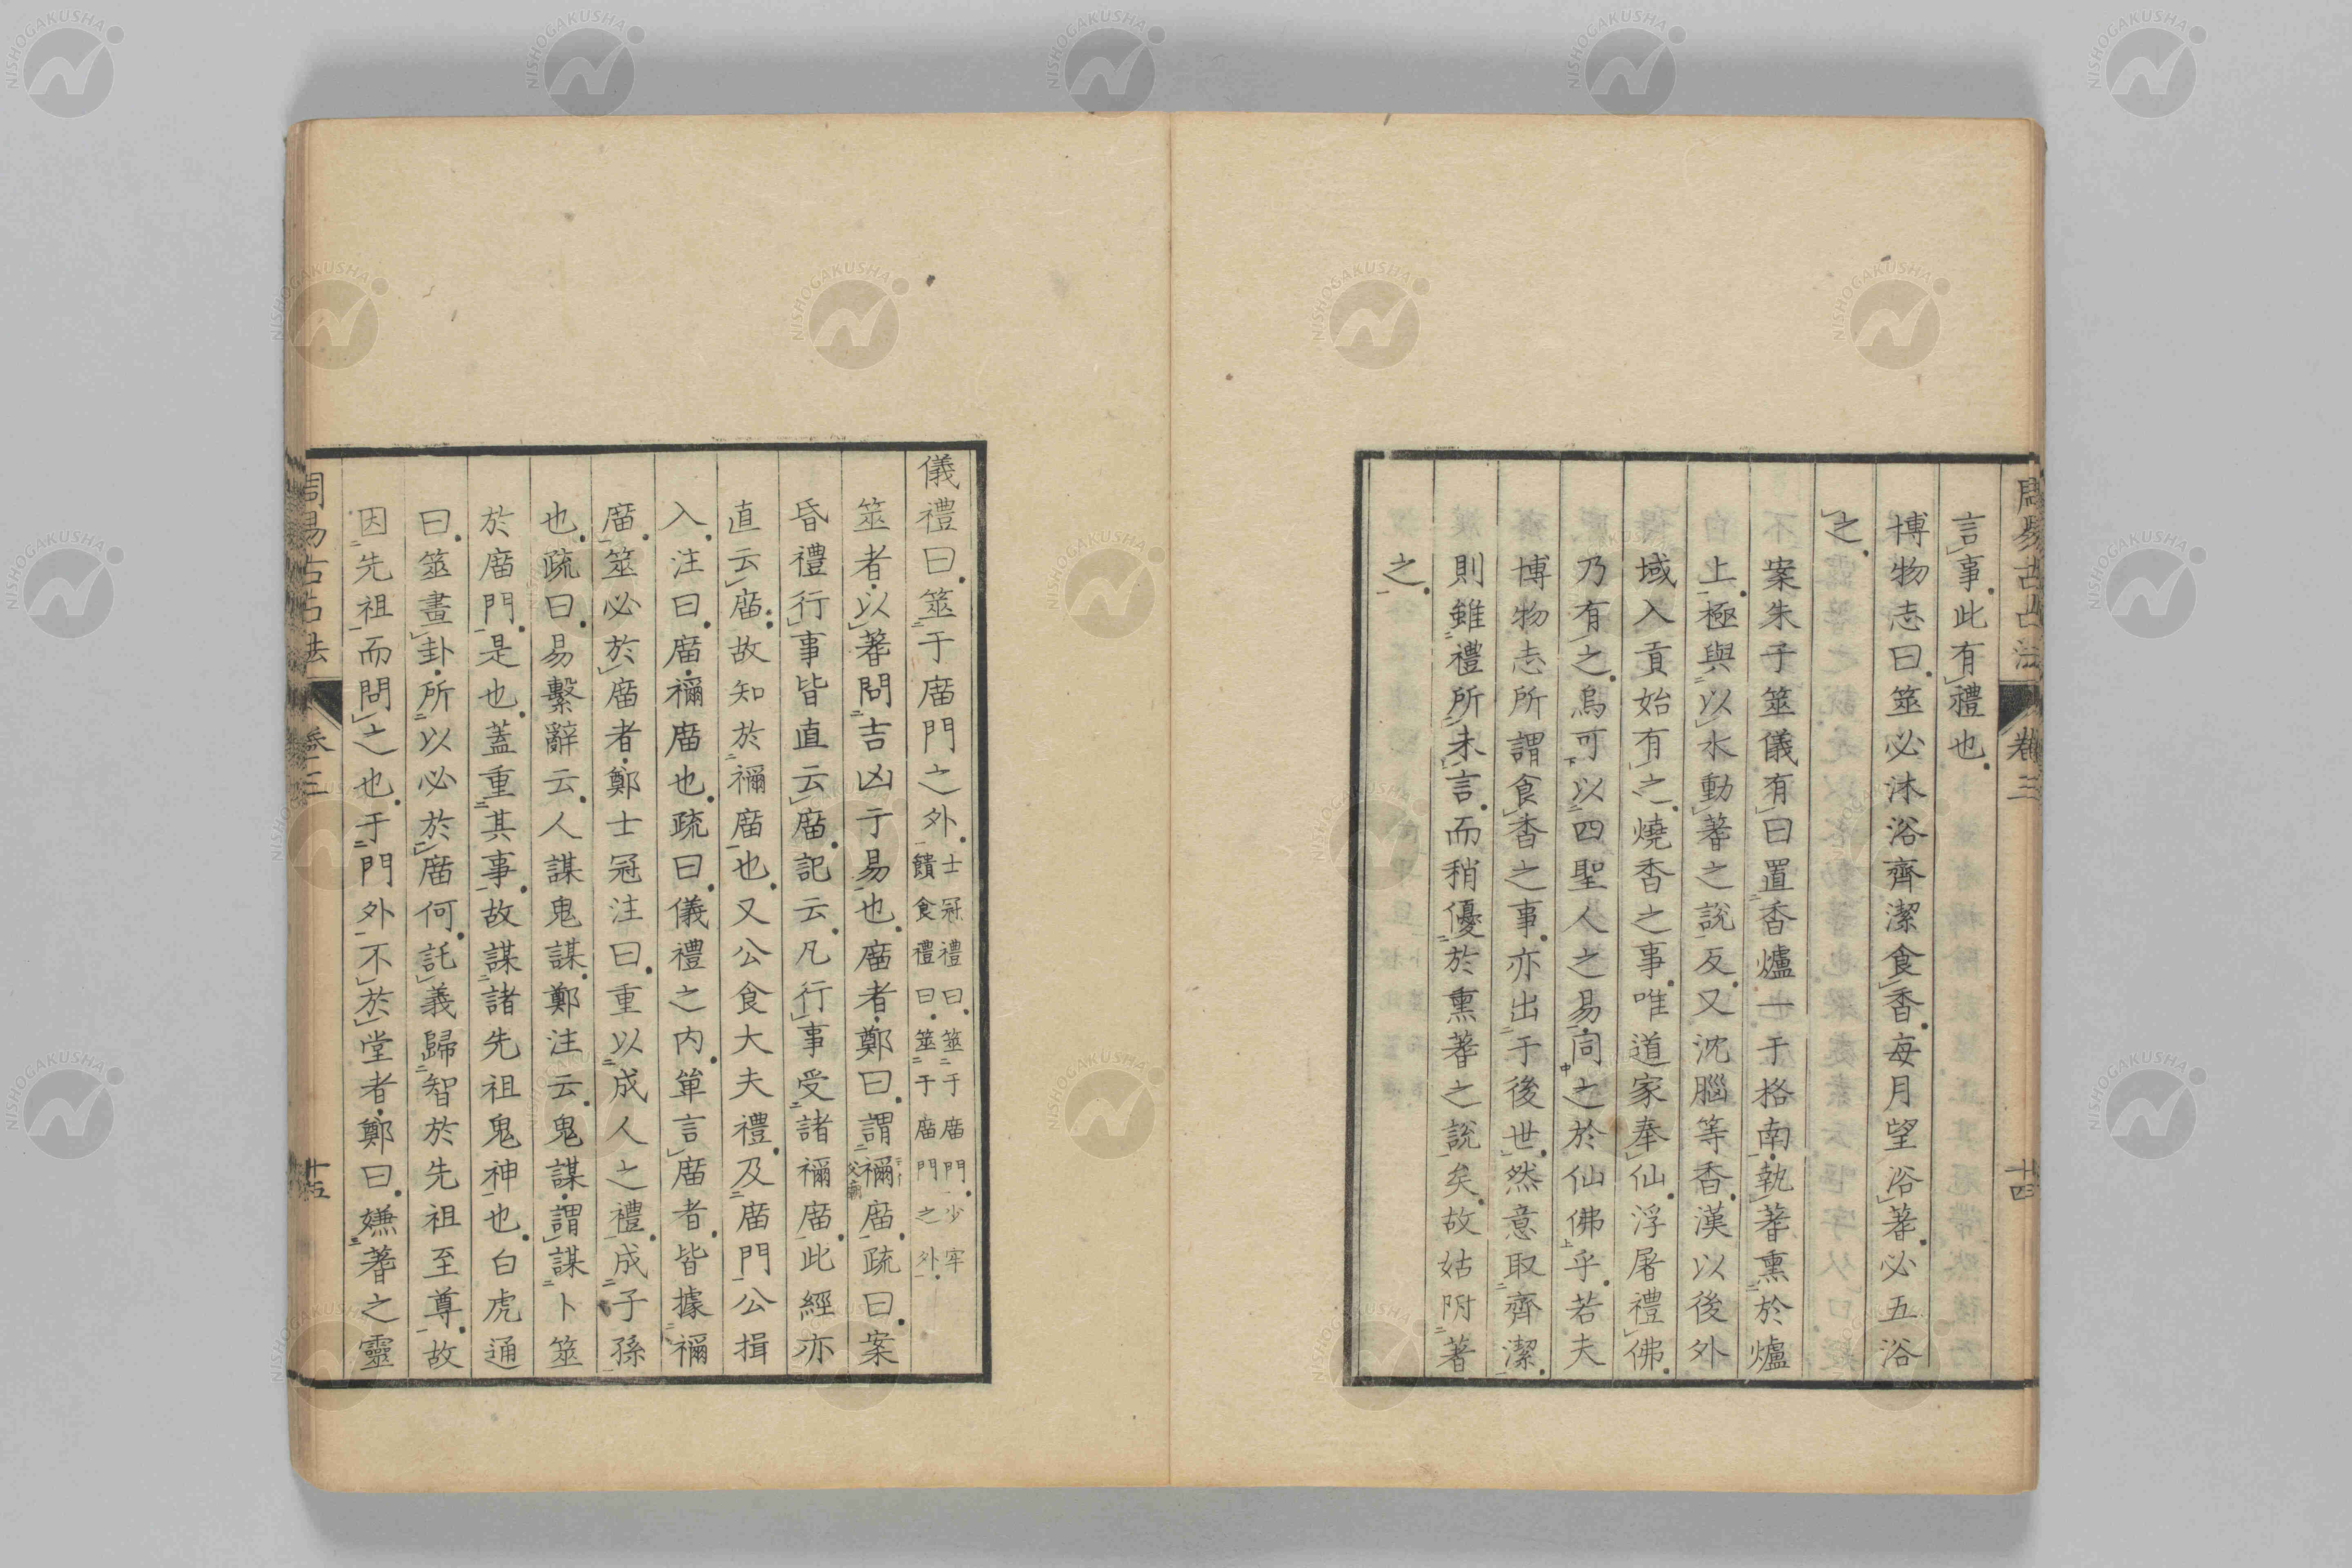 周易古占法 卷三 十四
言事此有禮也
博物志曰筮必沐浴齊潔食香每月望浴蓍必五浴
之
案朱子筮儀有曰置香爐一于格南執蓍熏於爐
上極與以水動蓍之說反又沈腦等香漢以後外
域入貢始有之燒香之事唯道家奉仙浮屠禮佛
乃有之烏可以四聖人之易同之於仙佛乎若夫
博物志所謂食香之事亦出于後世然意取齊潔
則雖禮所未言而稍優於熏蓍之說矣故姑附著
之
儀禮曰筮于庿門之外
士冠禮曰筮于庿門少牢
饋食禮曰筮于庿門之外
筮者以蓍問吉凶于易也庿者鄭曰謂禰庿疏曰案
父廟
昏禮行事皆直云庿記云凡行事受諸禰庿此經亦
直云庿故知於禰庿也又公食大夫禮及庿門公揖
入注曰庿禰庿也疏曰儀禮之內單言庿者皆據禰
庿筮必於庿者鄭士冠注曰重以成人之禮成子孫
也疏曰易繫辭云人謀鬼謀鄭注云鬼謀謂謀卜筮
於庿門是也蓋重其事故謀諸先祖鬼神也白虎通
曰筮畫卦所以必於庿何託義歸智於先祖至尊故
因先祖而問之也于門外不於堂者鄭曰嫌蓍之靈
周易古占法 卷三 十五
NISHOGAKUSHA